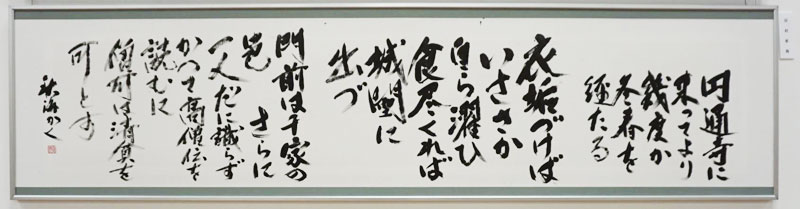 円通寺に
来ってより
幾度か
冬春を
経たる
衣垢づけば
いささか
自ら濯ひ
食尽くれば
城闉に
出づ
門前は千家の
邑 さらに
一人だに識らず
かつて高僧伝を
読むに
僧可は清貧を
可とす
かく